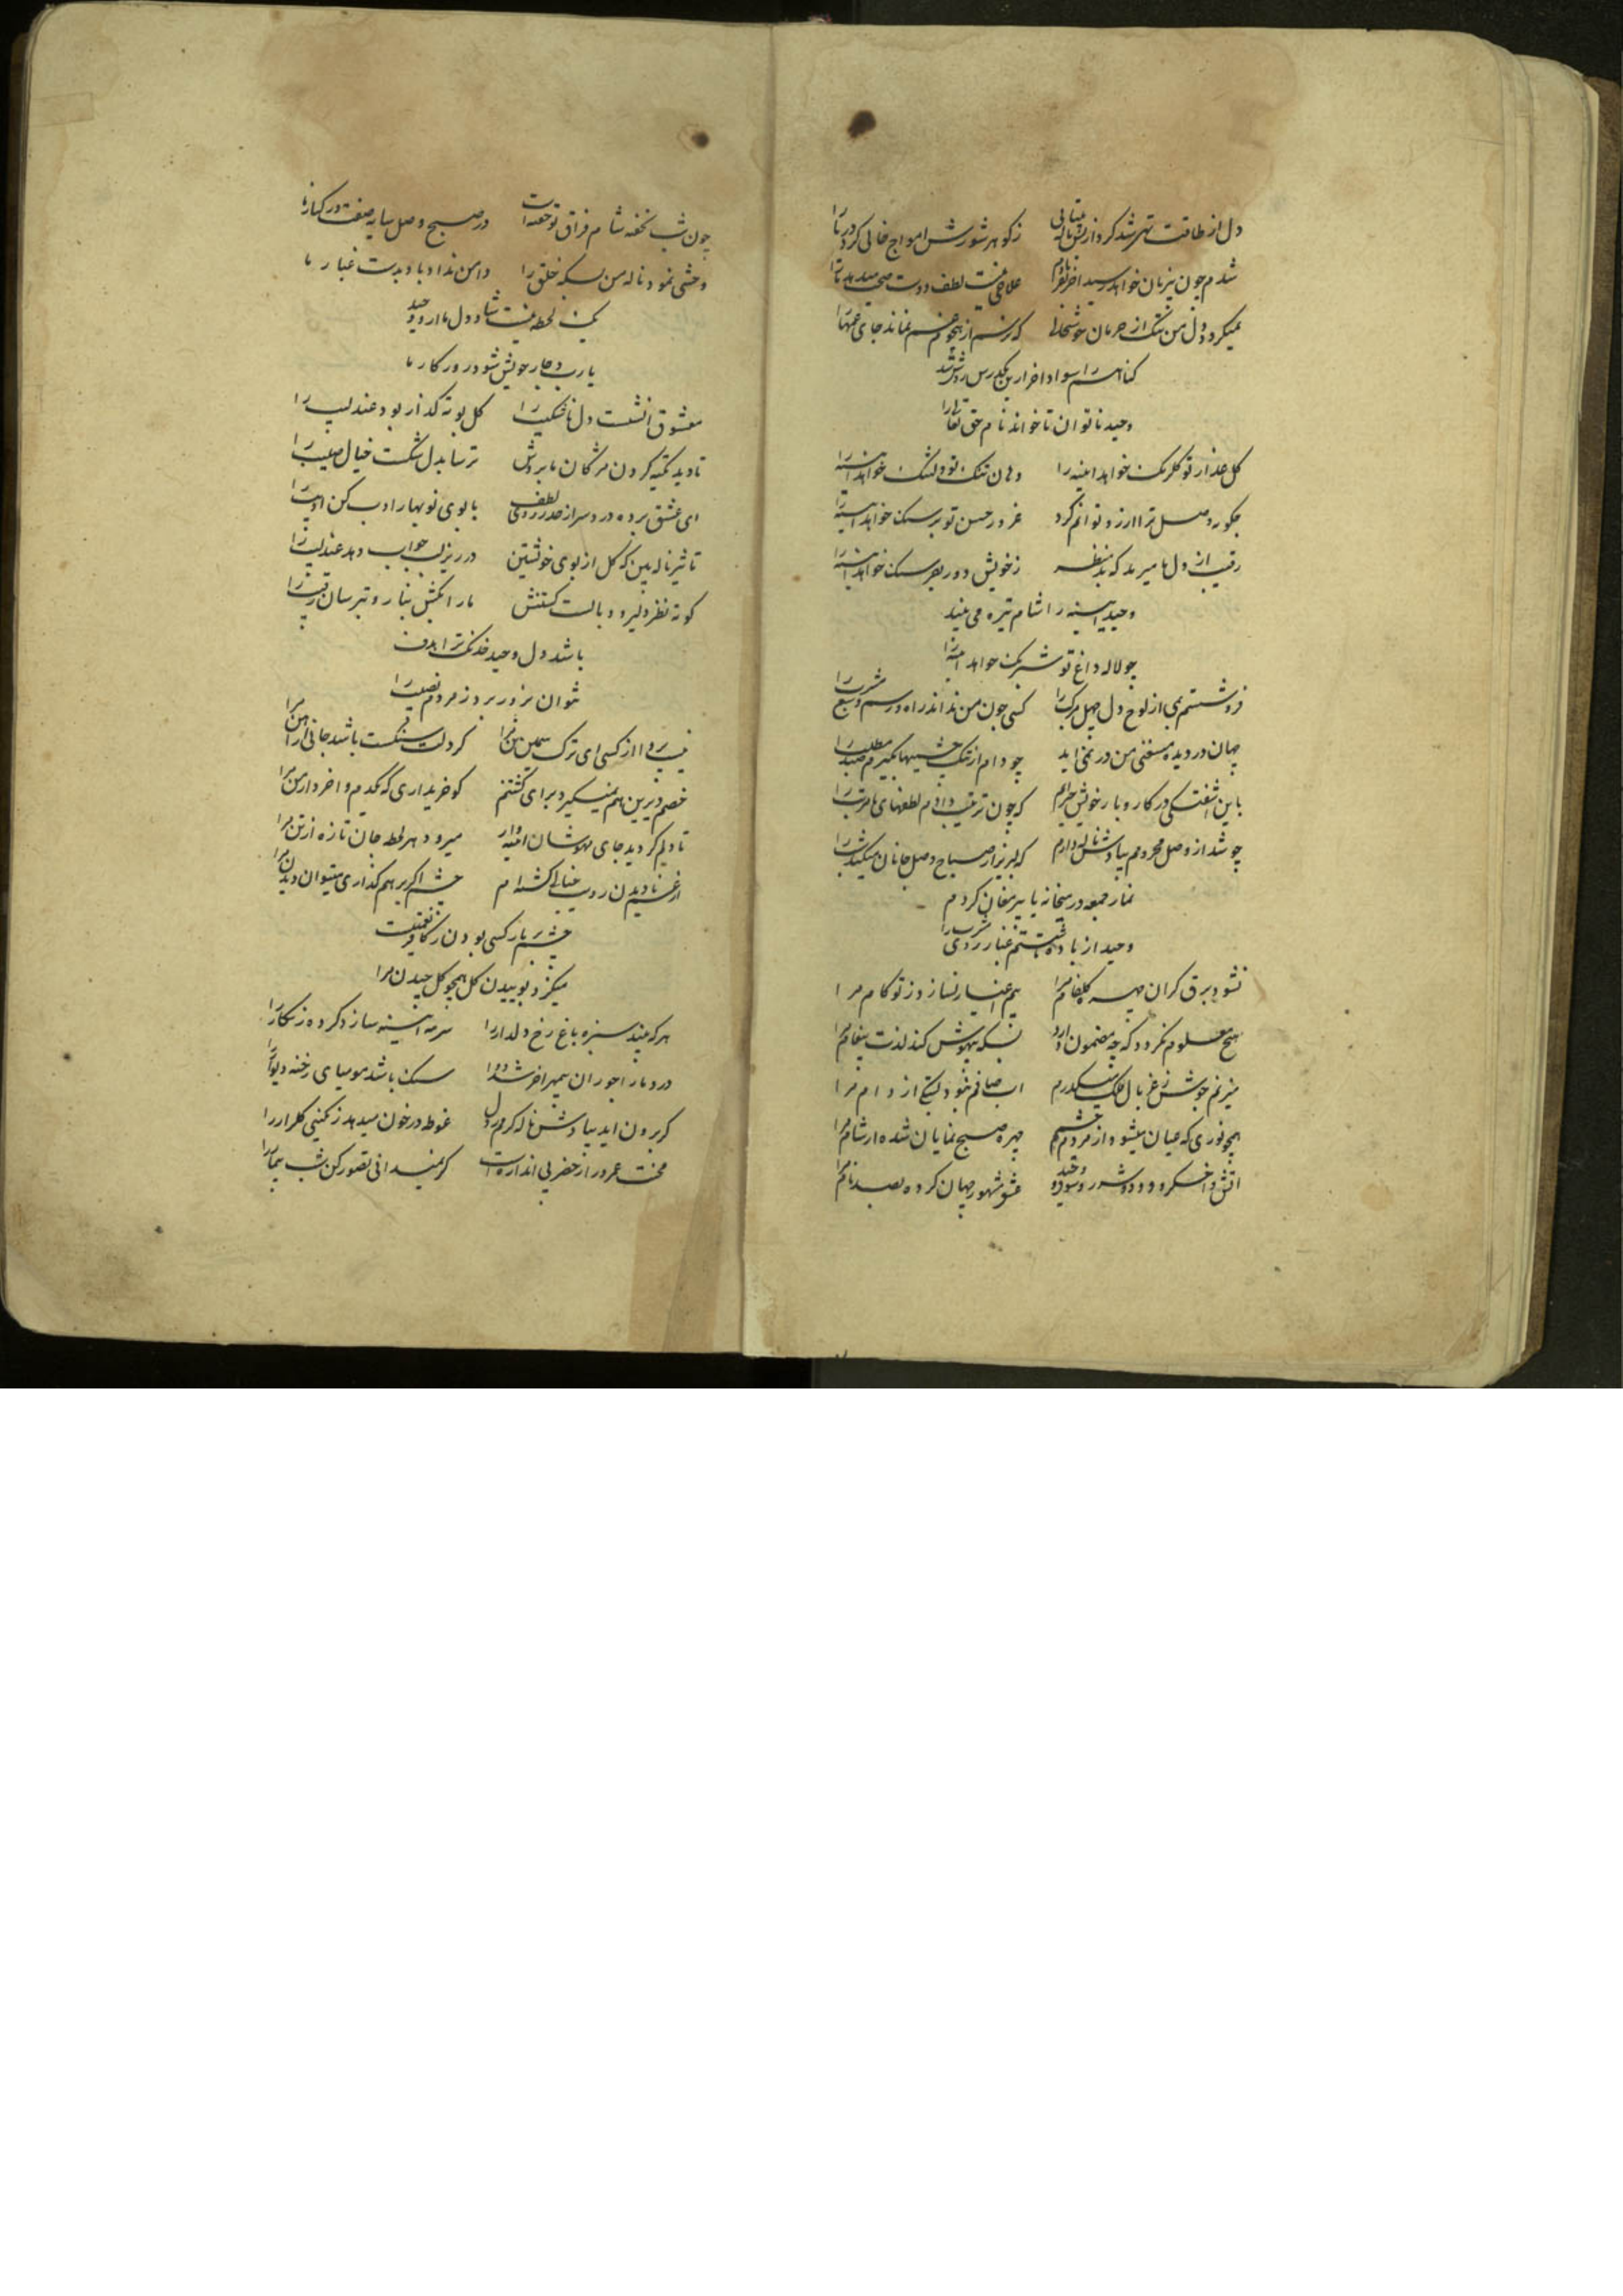 دل از طاقت تهی شد کرد از بس ناله بیتابی زکوهر شورش امواج خالی کرد دریا را
شدم چون پیر نان خواهد رسید اخر علاجی نیست لطف دوست میدهد ما را
نمیکردد دل من تنک از حرمان خوشحالم که ترسم از هجوم غم نماند جای غمها را
کتاب را سواد اخر ازین یکدرس روشن شد
وحید ناتوان تا خواند نام حق تعالی را
کل عذار تو کلرنک خواهد اینه را دهان تنک تو دلتنک خواهد اینه را
چکونه وصل ترا ارزو توانم کرد غرور حسن تو بر سنک خواهد اینه را
رقیب از دل ما میرمد که بدنظر زخویش دور بفرسنک خواهد اینه را
وحید اینه را شام تیره می بیند
چو لاله داغ تو شبرنک خواهد اینه را
فرو شستم پی از لوح دل جهل مرکب را کسی چون من نداند راه و رسم وسع مشرب را
جهان در دیده مستغنی من در نمی اید چو دام از تنک چشمیها نکیرم صید مطلب را
باین اشفتکی در کار و بار خویش حیرانم که چون ترتیب دادم لطفهای نامرتب را
چو شد از وصل محرومم بیادش ناله دارم که لبریز از صباح وصل جانان میکند شب را
نماز جمعه در میخانه با پیر مغان کردم
وحید از باده تا شستم غبار روی مشرب را
نشود برق کران مهر کلفام مرا بیم اغیار نسازد ز تو کام مرا
هیچ معلوم نکردد که چه مضمون دارد بسکه بیهوش کند لذت پیغام مرا
میزنم جوش ز غربال فلک میکذرم اب صافم نبود لنک از دام مرا
همچو نوری که عیان میشود از مردم چشم چهره صبح نمایان شده از شام مرا
اتش و اخکر و دود و شرر و سوز وحید عشق مشهور جهان کرده بصد نام مرا
چون شب نخفته شام فراق تو خفته است در صبح وصل سایه صفت در کنار ما
وحشی نمود ناله من بسکه خلق را دامن نداد باد بدست غبار ما
یک لحظه نیست شاد دل ما ازو وحید
یارب دچار خویش شود روزکار ما
معشوق انشست دل ناشکیب را کل بوته کداز بود عندلیب را
تا دید تکیه کردن مژکان بابروش ترسا بدل شکست خیال صلیب را
ای عشق برده درد سر از حد ز روی لطف با بوی نوبهار ادب کن ادیب را
تاثیر ناله بین که کل از بوی خویشتن در زیر لب جواب دهد عندلیب را
کوته نظر دلیرود بالست کشتنش ما را بکش بناز و بترسان رقیب را
باشد دل وحید خدنک ترا هدف
نتوان بزور برد ز مردم نصیب را
نیست پروا از کسی ای ترک سیمین تن مرا کر دلت سنکست باشد جانی از اهن مرا
خصم دیرین هم نمیکیرد برای کشتنم کو خریداری که یکدم واخرد از من مرا
تا دلم کردید جای مهوشان اینه وار میرود هر لحظه جان تازه از تن مرا
از غم نادیدن رویت خیالی کشته ام چشم اکر بر هم کذاری میتوان دیدن مرا
چشم بر بار کسی بودن ز کافر نعمتیست
میکزد بوییدن کل همچو کل چیدن مرا
هر که بیند سبزه باغ رخ دلدار را سرمه اینه سازد کرده زنکار را
درد ما را جور ان بیمهر اخر شد دوا سنک باشد مومیای رخنه دیوار را
کر برون اید بیادش ناله کرم ز دل غوطه در خون میدهد رنکینی کلزار را
محنت عمر دراز خضر بی اندازه است کر نمیدانی تصور کن شب بیمار را